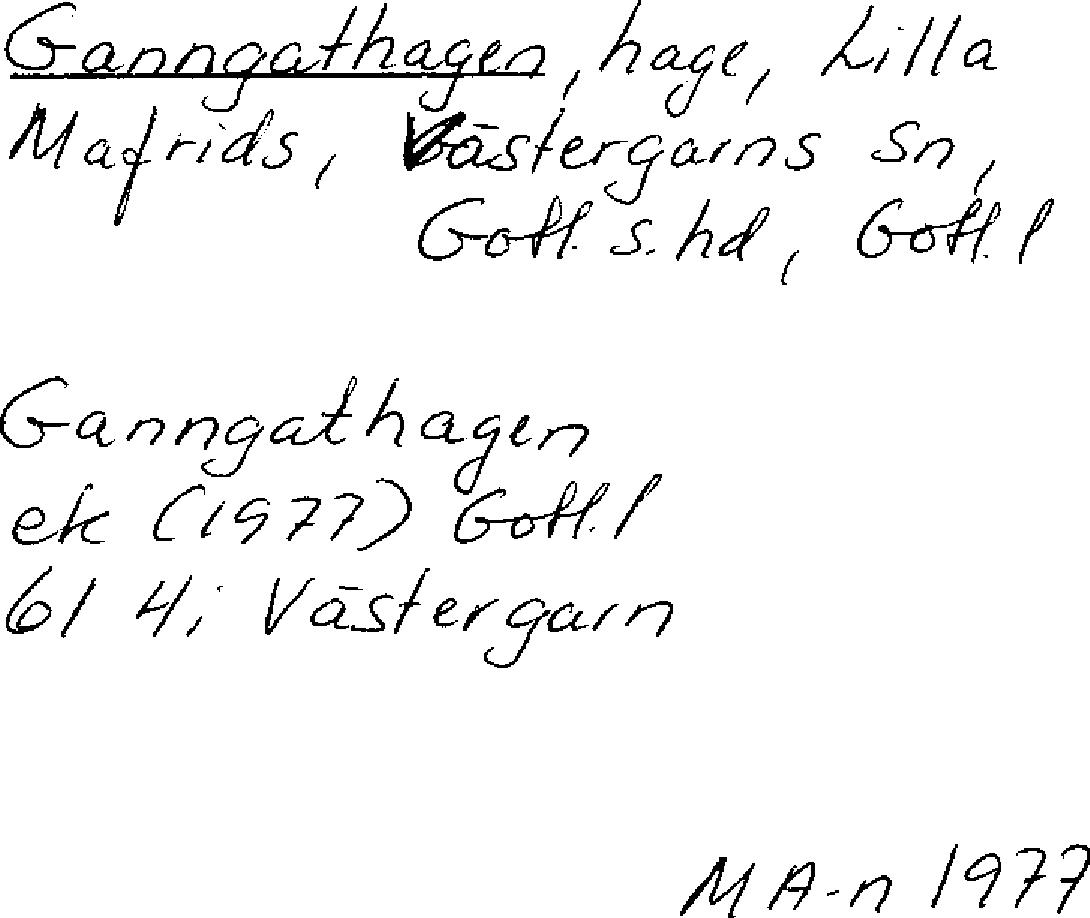 Ganngathagen, hage, Lilla
Mafrids, Västergarns sn,
Gotl. s. hd, Gotl. l
Ganngathagen
ek (1977) Gotl. l
61 4i Västergarn
MA-n 1977